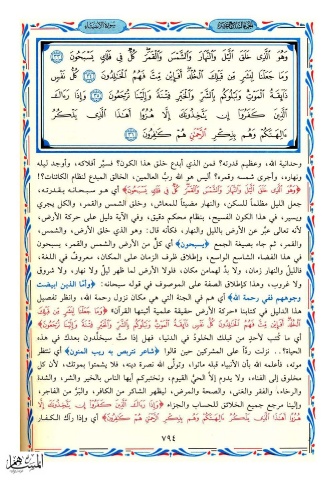 سورة الأنبياء
وَهُوَ الَّذِي خَلَقَ اللَّيْلَ وَالنَّهَارَ وَالشَّمْسَ وَالْقَمَرَ كُلٌّ فِي فَلَكٍ يَسْبَحُونَ ﴿٣٣﴾
وَمَا جَعَلْنَا لِبَشَرٍ مِّن قَبْلِكَ الْخُلْدَ أَفَإِين مِّتَّ فَهُمُ الْخَالِدُونَ ﴿٣٤﴾ كُلُّ نَفْسٍ
ذَائِقَةُ الْمَوْتِ وَنَبْلُوكُم بِالشَّرِّ وَالْخَيْرِ فِتْنَةً وَإِلَيْنَا تُرْجَعُونَ ﴿٣٥﴾ وَإِذَا رَآكَ
الَّذِينَ كَفَرُوا إِن يَتَّخِذُونَكَ إِلَّا هُزُوًا أَهَذَا الَّذِي يَذْكُرُ
آلِهَتَكُمْ وَهُم بِذِكْرِ الرَّحْمَنِ هُمْ كَافِرُونَ ﴿٣٦﴾
وحدانية الله، وعظيم قدرته؟ فمن الذي أبدع خلق هذا الكون؟ فسيّر أفلاكه، وأوجد ليله
ونهاره، وأجرى شمسه وقمره؟ أليس هو الله ربّ العالمين، الخالق المبدع لنظام الكائنات؟!
﴿وَهُوَ الَّذِي خَلَقَ اللَّيْلَ وَالنَّهَارَ وَالشَّمْسَ وَالْقَمَرَ كُلٌّ فِي فَلَكٍ يَسْبَحُونَ﴾ أي هو سبحانه بقدرته،
جعل الليل مظلماً للسكن، والنهار مضيئاً للمعاش، وخلق الشمس والقمر، والكل يجري
ويسير، في هذا الكون الفسيح، بنظام محكم دقيق، وفي الآية دليل على حركة الأرض،
لأنه تعالى عبّر عن الأرض بالليل والنهار، فكأنه قال: وهو الذي خلق الأرض، والشمس،
والقمر، ثم جاء بصيغة الجمع ﴿يسبحون﴾ أي كلّ من الأرض والشمس والقمر، يسبحون
في هذا الفضاء الشاسع الواسع، وإطلاق ظرف الزمان على المكان، معروفٌ في اللغة،
فالليل والنهار زمان، ولا بدّ لهما من مكان، فلولا الأرض لما ظهر ليلٌ ولا نهار، ولا شروق
ولا غروب، وهذا كإطلاق الصفة على الموصوف في قوله سبحانه: ﴿وأمّا الذين ابيضت
وجوههم ففي رحمة الله﴾ أي هم في الجنة التي هي مكان نزول رحمة الله، وانظر تفصيل
هذا الدليل في كتابنا «حركة الأرض حقيقة علمية أثبتها القرآن» ﴿وَمَا جَعَلْنَا لِبَشَرٍ مِّن قَبْلِكَ
الْخُلْدَ أَفَإِين مِّتَّ فَهُمُ الْخَالِدُونَ كُلُّ نَفْسٍ ذَائِقَةُ الْمَوْتِ وَنَبْلُوكُم بِالشَّرِّ وَالْخَيْرِ فِتْنَةً وَإِلَيْنَا تُرْجَعُونَ﴾
أي ما كتب لأحدٍ من قبلك الخلود في الدنيا، فهل إذا متّ سيخلّدون بعدك في هذه
الحياة؟.. نزلت ردّاً على المشركين حين قالوا ﴿شاعر نتربص به ريب المنون﴾ أي ننتظر
موته، فأعلمه الله بأن الأنبياء قبله ماتوا، وتولّى الله نصرة دينه، فلا يشمتوا بموتك، لأن كل
مخلوق إلى الفناء، ولا يدوم إلاّ الحيّ القيوم، ونختبركم أيها الناس بالخير والشر، والشدة
والرخاء، والفقر والغنى، والصحة والمرض، ليظهر الشاكر من الكافر، والبرّ من الفاجر،
وإلينا مرجع جميع الخلائق للحساب والجزاء ﴿وَإِذَا رَآكَ الَّذِينَ كَفَرُوا إِن يَتَّخِذُونَكَ إِلَّا
هُزُوًا أَهَذَا الَّذِي يَذْكُرُ آلِهَتَكُمْ وَهُم بِذِكْرِ الرَّحْمَنِ هُمْ كَافِرُونَ﴾ أي وإذا رآك الكفار
٧٩٤